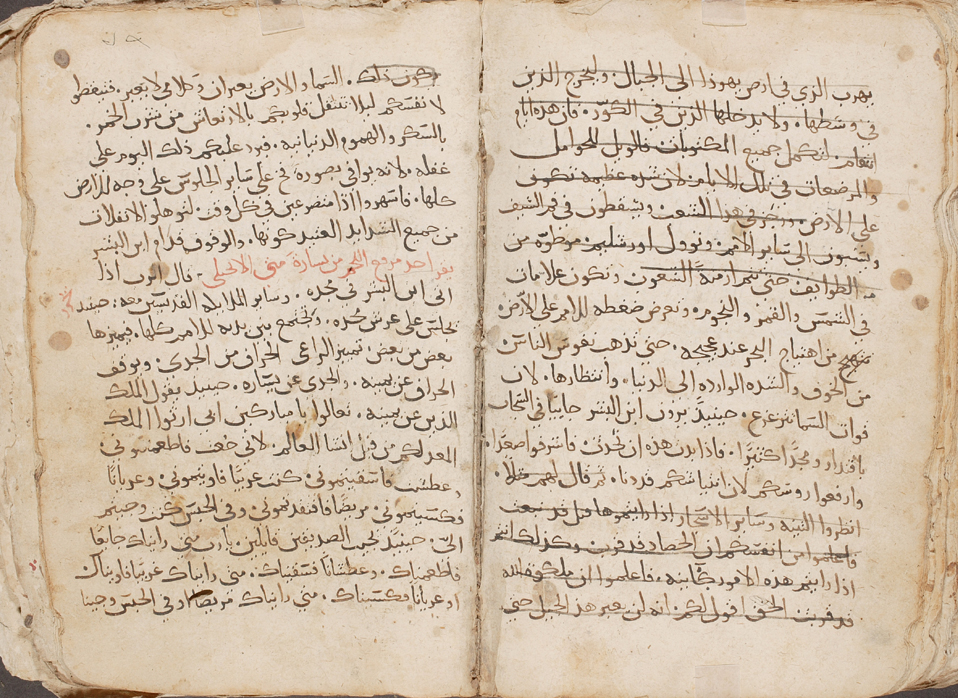 يهرب الذي في ارض يهوذا الى الجبال. وليخرج الذين
في وسطها. ولا يدخلها الذين في الكور. فان هذه ايام
انتقام. لتكمل جميع المكتوبات فالويل للحوامل
والمرضعات في تلك الايام. لان شده عظيمه تكون
على الارض. ورجز في هذا الشعب ويسقطون في فم السيف
ويسبون الى ساير الامم. وتوول اورشليم موطوّه من
الطوايف حتى تتم ازمنة الشعوب وتكون علامات
في الشمس والقمر والنجوم. وتعرض ضغطه للامم على الارض
من اهتياج البحر عند عجيجه. حتى تذهب نفوس الناس
من الخوف والشده الوارده الى الدنيا. وانتظارها. لان
قوات السما تتزعزع. حينيذ يرون ابن البشر جاييا في السحاب
باقتدار ومجدا كثيرا. فاذا بدت هذه ان تحدث. فاشرفوا صعدا.
وارفعوا روسكم لان انتياشكم قد دنا. ثم قال لهم مثلا.
انظروا التينه وساير الاشجار اذا رايتموها قبل قد نبعت
فاعلموا من انفسكم ان الحصاد قد قرب. وكذلك انتم
اذا رايتم هذه الامور كاينه. فاعلموا ان ملكوت الله
قد قربت الحق اقول لكم. انه لن يعبر هذا الجيل حتى
يكون ذلك. السما والارض يعبران وكلامي لا يعبر. فتيقظوا
لانفسكم ليلا تثقل قلوبكم بالارتعاش من شرب الخمر.
بالسكر والهموم الدنيانيه. فيرد عليكم ذلك اليوم على
غفله. لانه يوافي بصورة فخ على ساير الجلوس على وجه الارض
كلها. فاسهروا اذا متضرعين في كل وقت لتوهلوا الانفلات
من جميع الشدايد العتيد كونها. والوقوف قدام ابن البشر
يقرا احد مرفع اللحم من بشارة متى الانجيلي. قال الرب اذا
اتى ابن البشر في مجده. وساير الملايكه القديسين معه. حينيذ
يجلس على عرش مجده. وتجتمع بين يديه للامم كلها. فيميزها
بعض من بعض. تمييز الراعي الخراف من الجدي. ويوقف
الخراف عن يمينه. والجدي عن يساره. حينيذ يقول الملك
للذين عن يمينه. تعالوا يا مباركين ابي ارثوا الملك
المعد لكم من قبل انشا العالم. لاني جعت فاطعمتموني
وعطشت فاسقيتموني. كنت غريبا فاويتموني. وعريانا
فكسيتموني. مريضا فافتقدتموني. وفي الحبس كنت وجيتم
الي. حينيذ تجيب الصديقين قايلين. يا رب متى رايناك جايعا
فاطعمناك. وعطشانا فسقيناك. متى رايناك غريبا فاويناك
او عريانا فكسيناك. متى رايناك مريضا او في الحبس وجينا